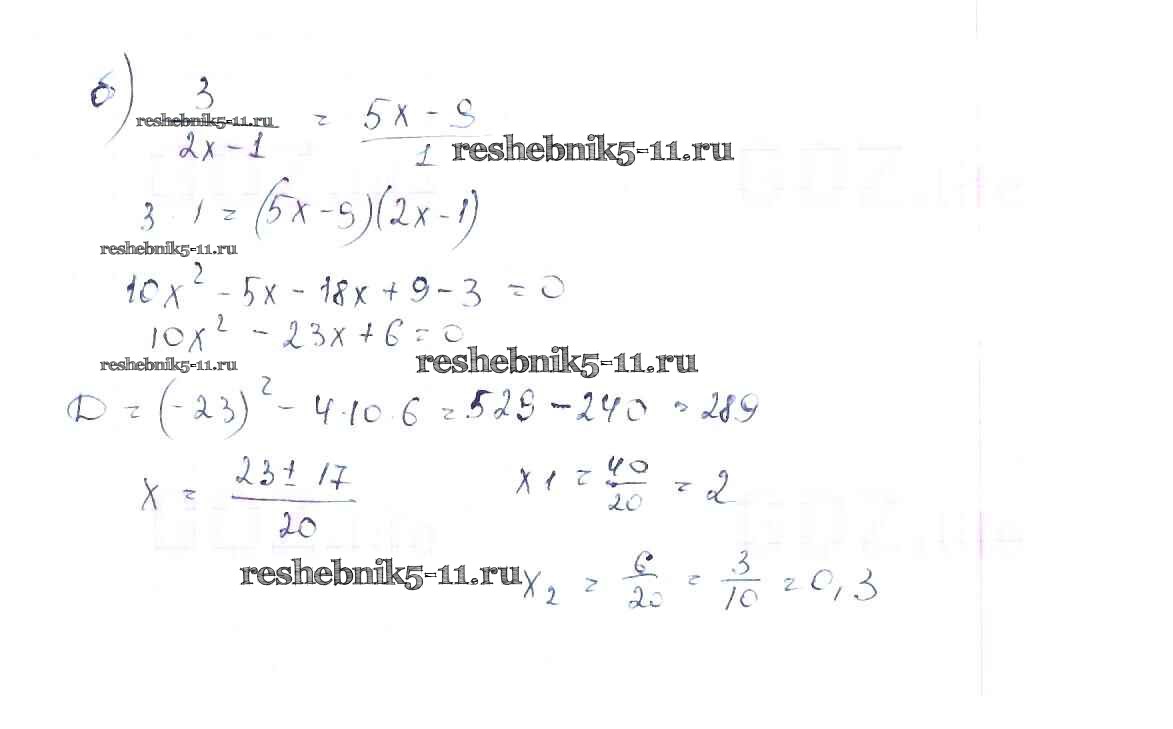 б) 3
reshebnik5-11.ru = 5x - 9
2x - 1 1 reshebnik5-11.ru
3 · 1 = (5x - 9)(2x - 1)
reshebnik5-11.ru
10x² - 5x - 18x + 9 - 3 = 0
10x² - 23x + 6 = 0
reshebnik5-11.ru reshebnik5-11.ru
D = (-23)² - 4·10·6 = 529 - 240 = 289
x = 23 ± 17 / 20 x1 = 40/20 = 2
reshebnik5-11.ru x₂ = 6/20 = 3/10 = 0,3